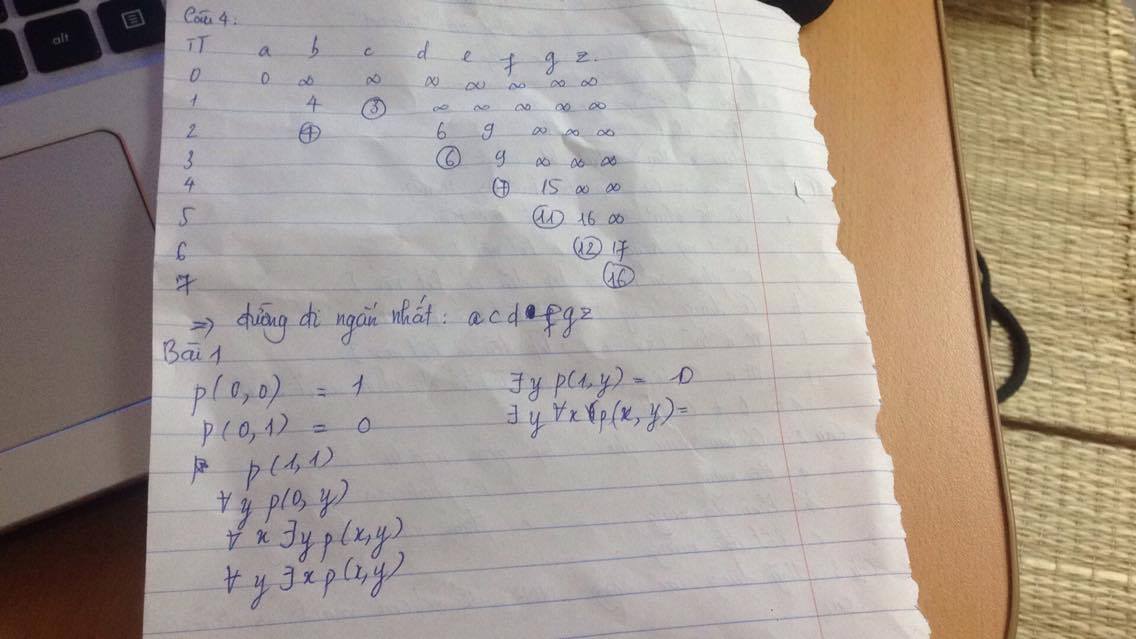 Câu 4:
TT a b c d e f g z.
0 0 ∞ ∞ ∞ ∞ ∞ ∞ ∞
1 4 ③ ∞ ∞ ∞ ∞ ∞
2 ④ 6 9 ∞ ∞ ∞
3 ⑥ 9 ∞ ∞ ∞
4 ⑦ 15 ∞ ∞
5 ⑪ 16 ∞
6 ⑫ 17
7 ⑯
=> đường đi ngắn nhất: a c d f g z
Bài 1
p(0,0) = 1 ∃y p(1,y) = 0
p(0,1) = 0 ∃y ∀x p(x,y) =
p(1,1)
∀y p(0,y)
∀x ∃y p(x,y)
∀y ∃x p(x,y)
alt